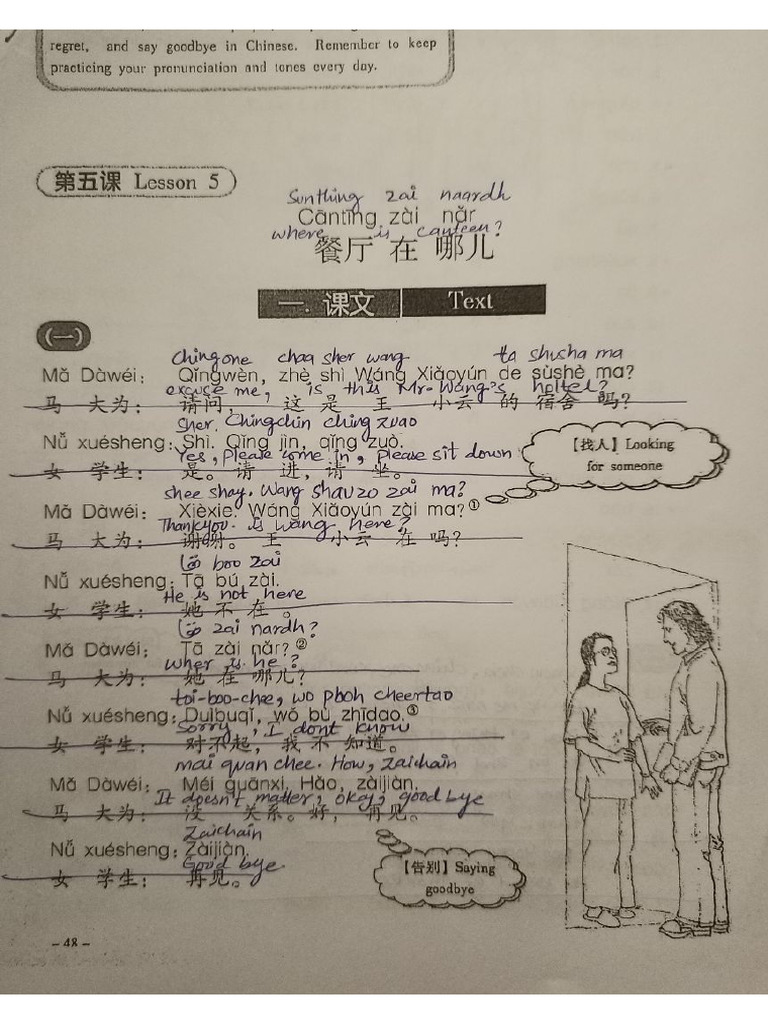 regret, and say goodbye in Chinese. Remember to keep
practicing your pronunciation and tones every day.
第五课 Lesson 5
Sunthing zai naardh
Cāntīng zài nǎr
where is canteen?
餐厅 在 哪儿
一. 课文 Text
(一)
Chingone chaa sher wang ta shusha ma
Mǎ Dàwéi: Qǐngwèn, zhè shì Wáng Xiǎoyún de sùshè ma?
excuse me, is this Mr. Wang's holtel?
马 大为: 请问, 这 是 王 小云 的 宿舍 吗?
sher. Chingchin ching zuao
Nǚ xuésheng: Shì. Qǐng jìn, qǐng zuò.
Yes, please come in, please sit down
女 学生: 是。请 进, 请 坐。
【找人】Looking
for someone
shee shay. Wang shauzo zai ma?
Mǎ Dàwéi: Xièxie. Wáng Xiǎoyún zài ma?①
Thankyou. is wang here?
马 大为: 谢谢。王 小云 在 吗?
boo zai
Nǚ xuésheng: Tā bú zài.
He is not here
女 学生: 她 不 在 。
zai nardh?
Mǎ Dàwéi: Tā zài nǎr?②
wher is he?
马 大为: 她 在 哪儿?
toi-boo-chee, wo pboh cheertao
Nǚ xuésheng: Duìbuqǐ, wǒ bù zhīdao.③
Sorry, I dont know
女 学生: 对不起, 我 不 知道。
mai quan chee. How, Zaichain
Mǎ Dàwéi: Méi guānxi. Hǎo, zàijiàn.
It doesn't matter, okay, good bye
马 大为: 没 关系。好, 再见。
Zaichain
Nǚ xuésheng: Zàijiàn.
Good bye
女 学生: 再见。
【告别】Saying
goodbye
- 48 -